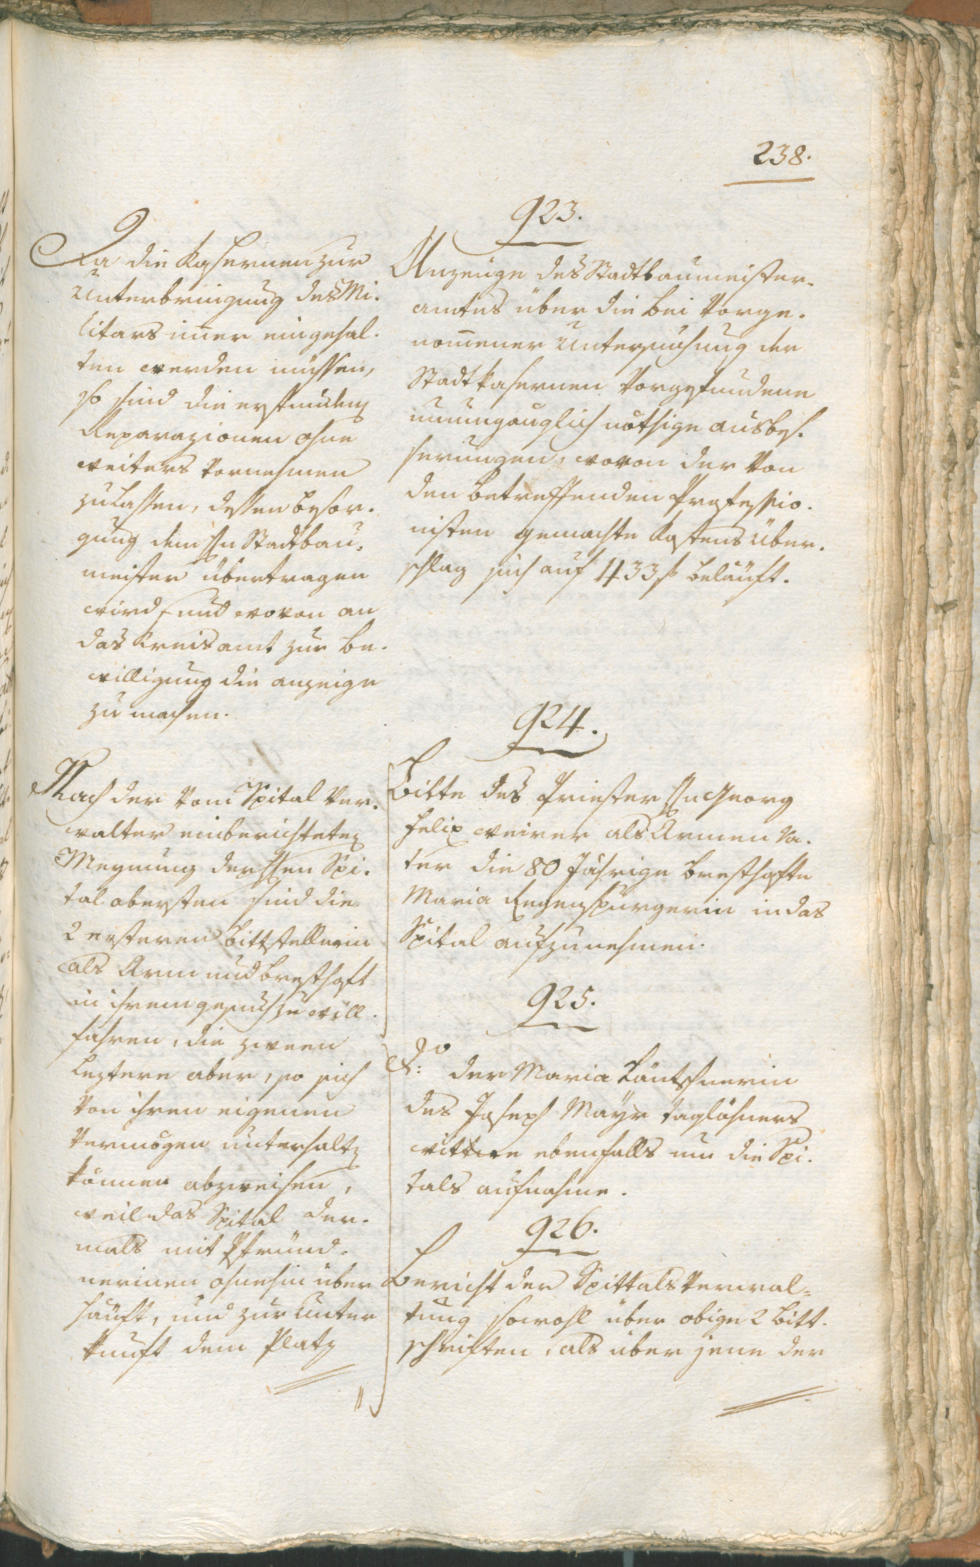 238.
923.
Da die Kasernen zur
Unterbringung des Mi-
litars im̅er eingehal-
ten werden müssen,
so sind die
Reparazionen ohne
weiters vornehmen
zu lassen, dessen besor-
gung dem Hn Stadtbau-
meister übertragen
wird, und wovon an
das Kreisamt zur be-
willigung die anzeige
zu machen.
Anzeige des Stadtbaumeister-
amtes über die bei vorge-
nom̅ener Untersuchung der
Stadtkasernen vorgefundene
unumgänglich nöthige ausbes-
serungen, wovon der von
den betreffenden Professio-
nisten gemachte Kostens über-
schlag sich auf 1433 f beläuft.
924.
Nach der vom Spital ver-
walter einberichteten
Meynung der Hhen Spi-
tal obersten sind die
2 ersteren Bittstellerin
als Arm und bresthaft
in ihrem gesuch zu will-
fahren, die zween
leztere aber, so sich
von ihren eigenen
vermögen unterhalten
können abzuweisen,
weil das Spital der-
mals mit Pfründ-
nerinen ohnehin über
häuft, und zur Unter
kunft dem Platz
Bitte des Priester Hn Georg
Felix als Armen Va-
ter die 80 Jährige bresthafte
Maria in das
Spital aufzunehmen.
925.
dto der Maria
des Joseph Mayr taglöhners
wittwe ebenfalls um die Spi-
tals aufnahme.
926.
Bericht der Spittals Verwal-
tung sowohl über obige 2 Bitt-
schriften, als über jene der